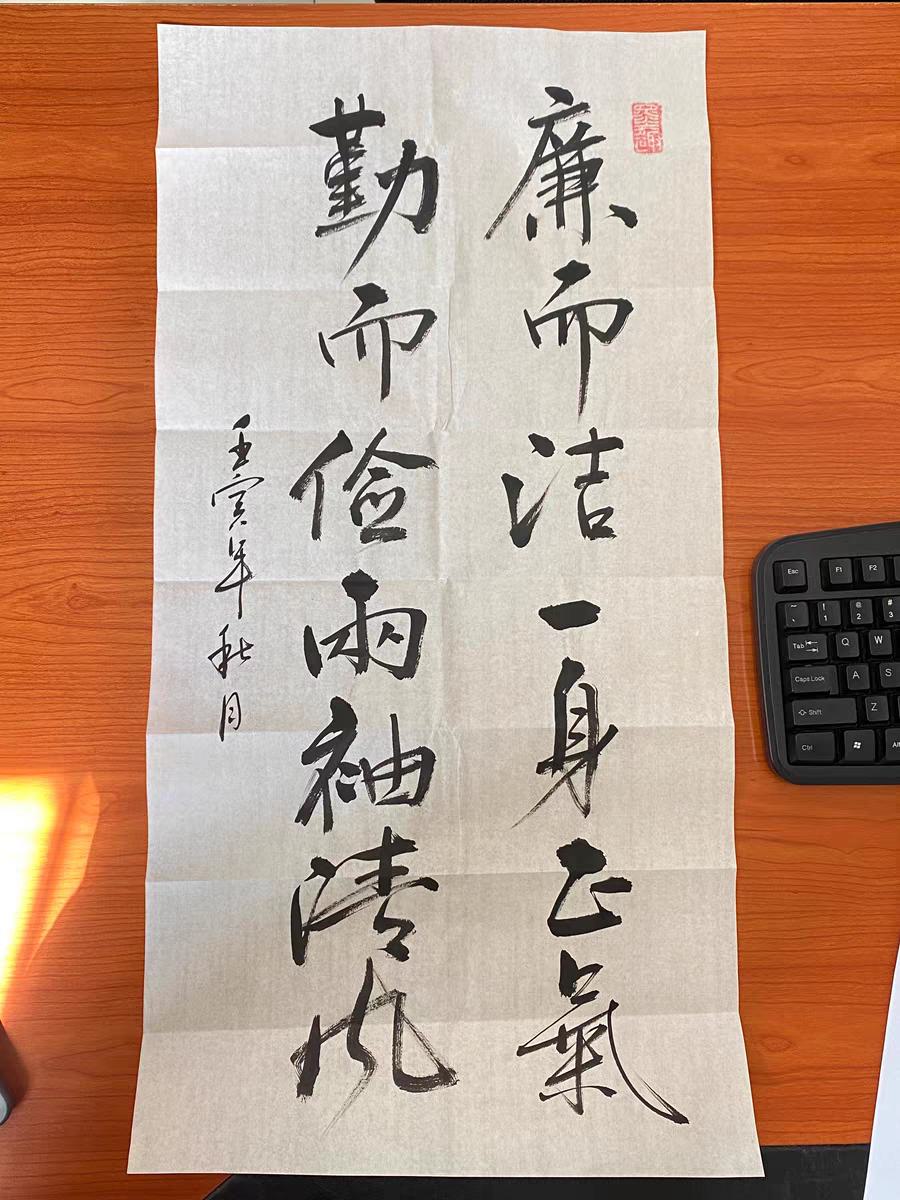 廉而洁一身正氣
勤而俭兩袖清风
壬寅年秋月
Esc F1 F2
~ ! 1 @ 2 # 3
Tab Q W
Caps Lock A S
Shift Z
Ctrl Alt